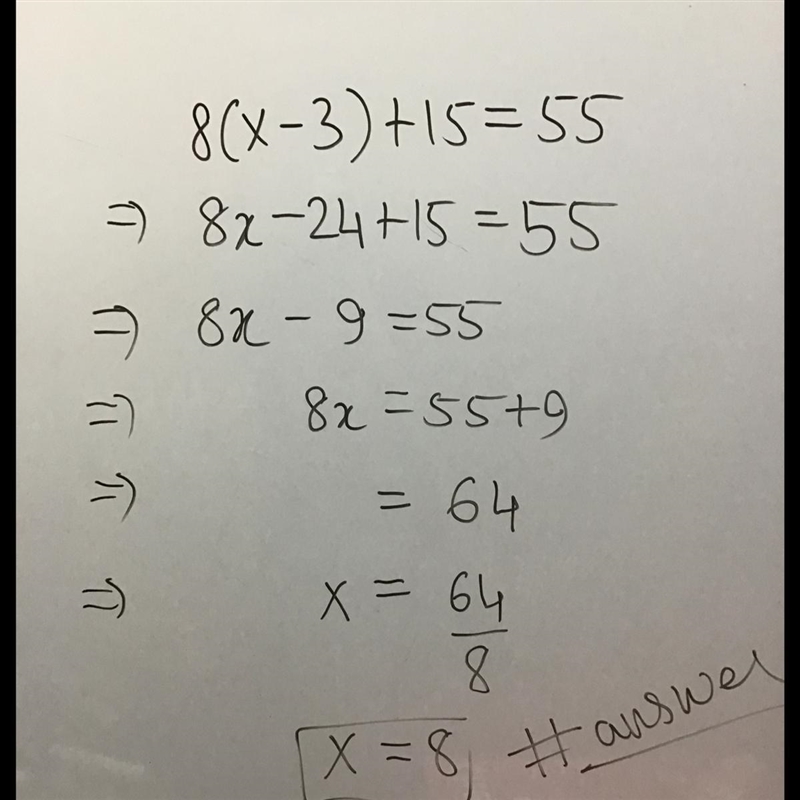 8(x-3)+15=55
⇒ 8x-24+15=55
⇒ 8x-9=55
⇒ 8x=55+9
⇒ =64
⇒ x=64/8
x=8 #answer